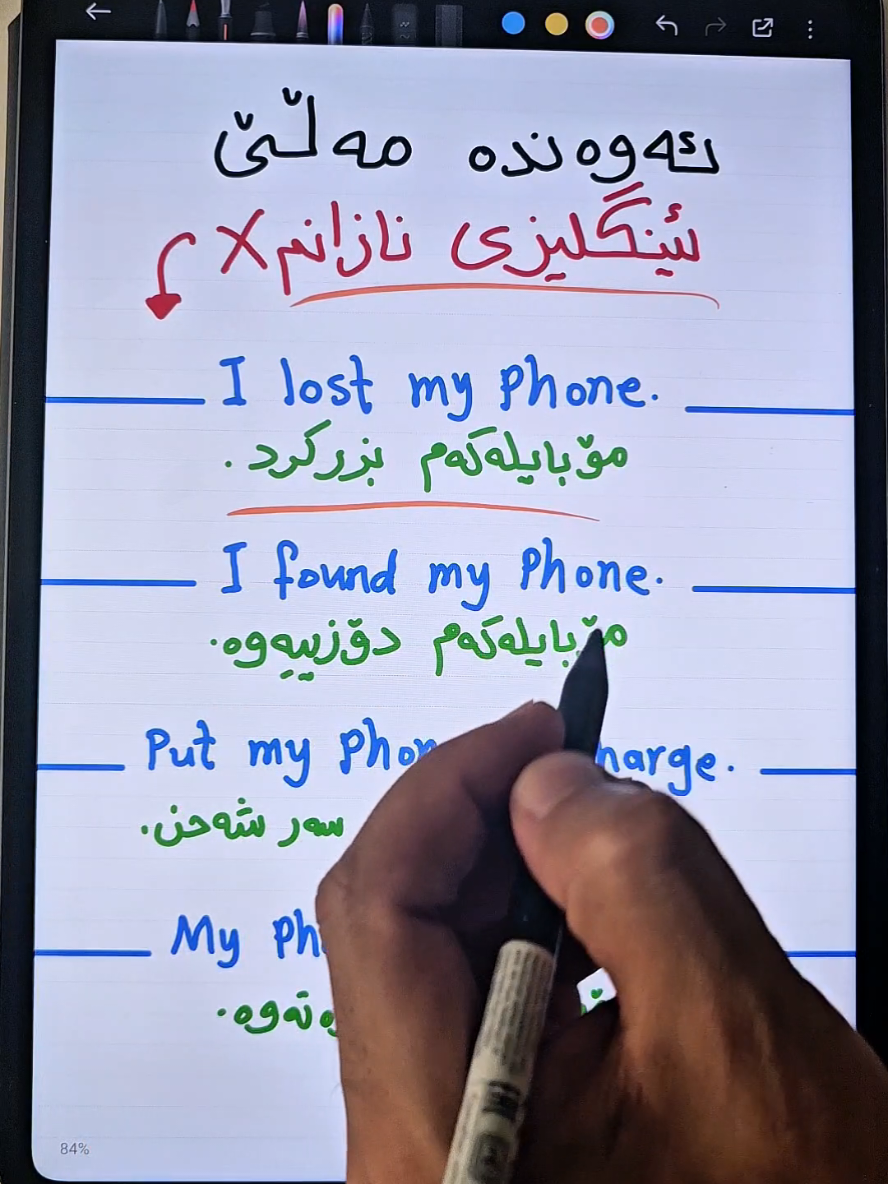 ئەوەندە مەڵێ
ئینگلیزی نازانم X
I lost my Phone.
مۆبایلەکەم بزرکرد.
I found my Phone.
مۆبایلەکەم دۆزییەوە.
Put my harge.
سەر شەحن.
My
84%